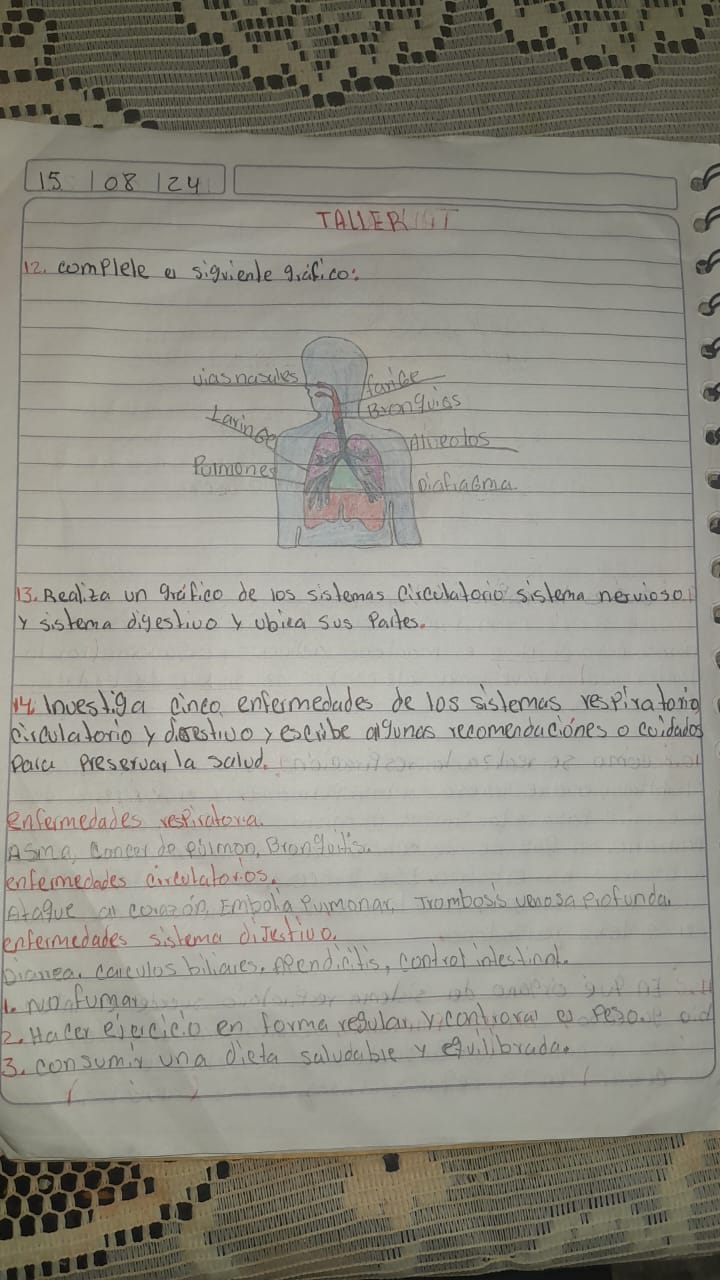 15 | 08 | 24
TALLER
12. complele el siguiente gráfico:
vias nasules
farige
Bronquios
Laringe
Alveolos
Pulmones
Diafragma
13. Realiza un gráfico de los sistemas circulatorio sistema nervioso
y sistema digestivo y ubica sus Partes.
14. Investiga cinco enfermedades de los sistemas respiratorio
circulatorio y digestivo y escribe algunas recomendaciones o cuidados
para preservar la salud.
enfermedades respiratoria.
Asma, Cancer de pulmon, Bronquitis.
enfermedades circulatorios.
Ataque al corazón, Embolia Pulmonar, Trombosis venosa Profunda.
enfermedades sistema dijestivo.
Diarrea, calculos biliares, Apendicitis, control intestinal.
1. no fumar
2. Hacer ejercicio en forma regular y controlar el Peso.
3. consumir una dieta saludable y equilibrada.